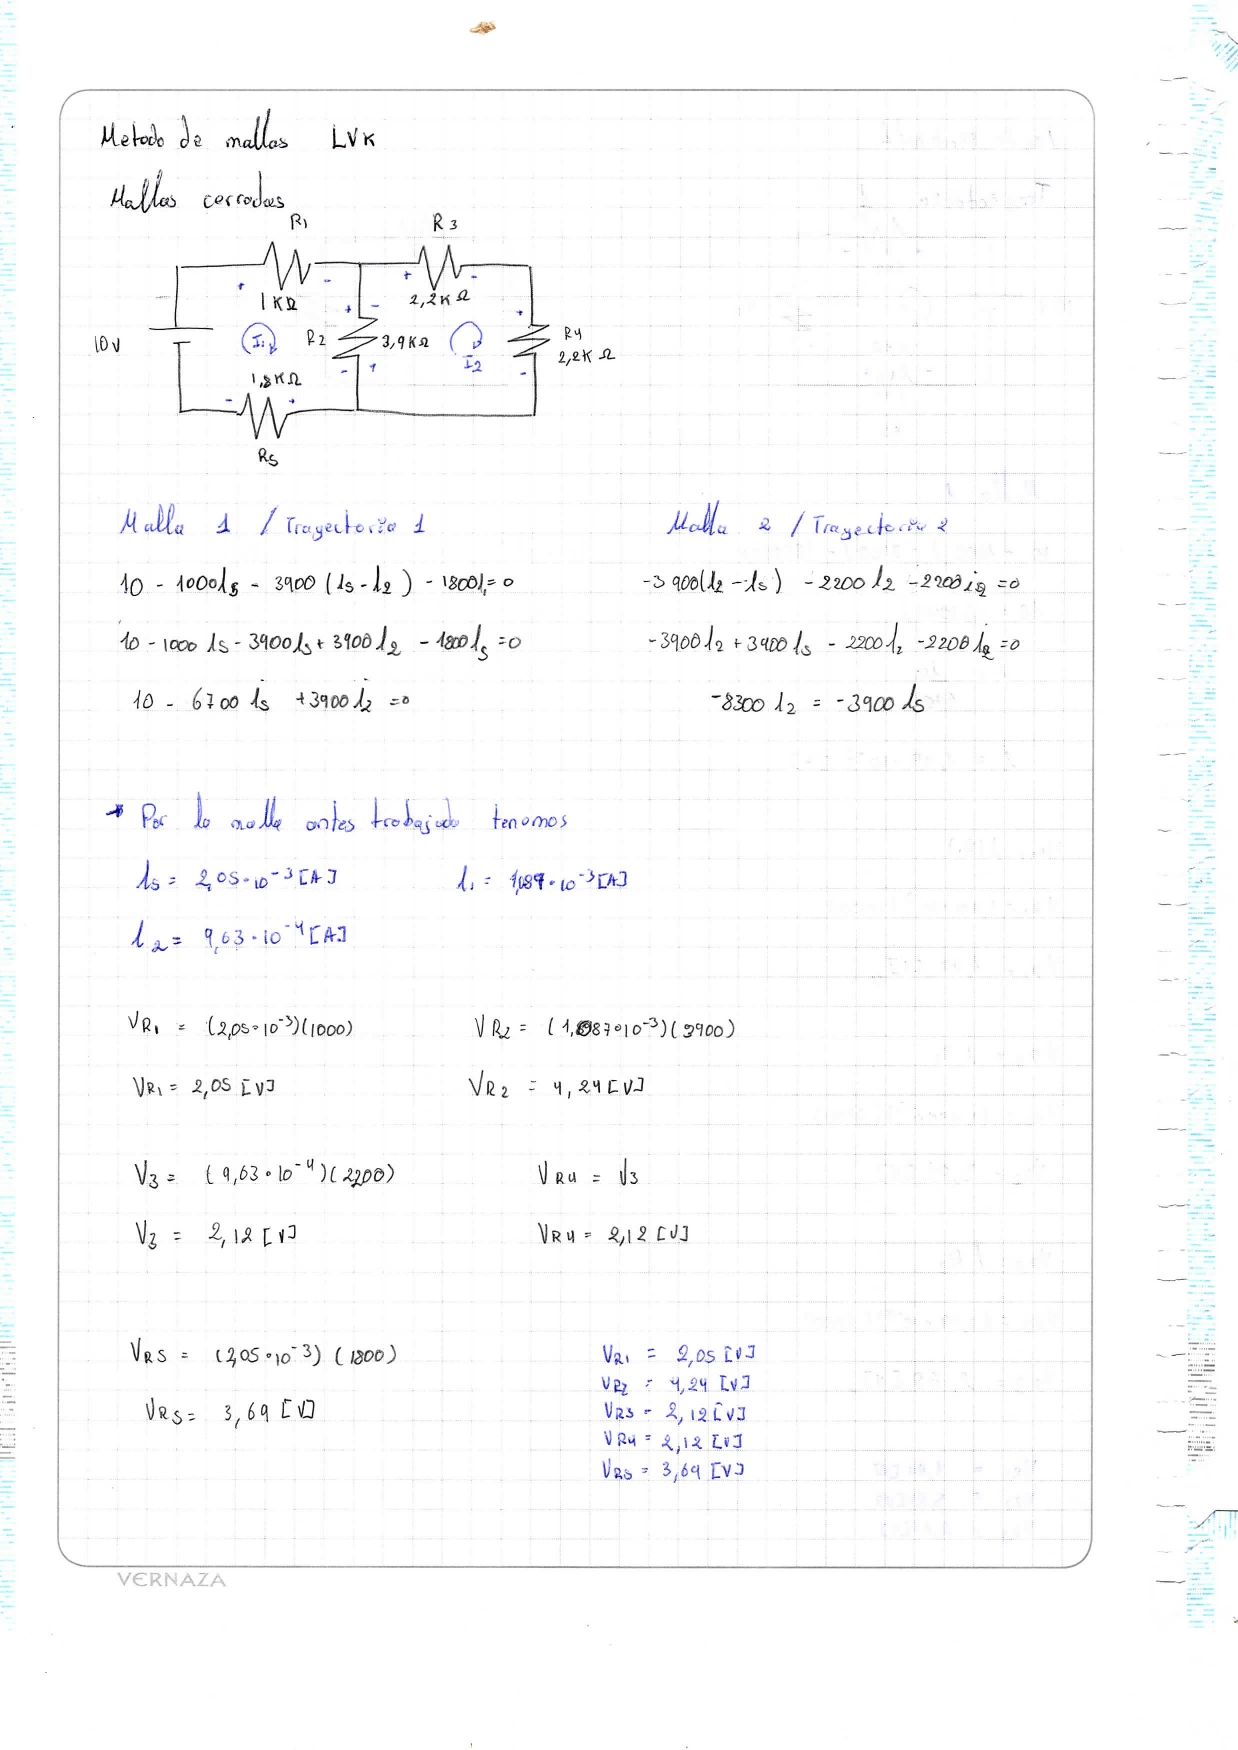 Metodo de mallas LVK
Mallas cerradas
R1
R3
1KΩ
2,2KΩ
10V
I1
R2
3,9KΩ
I2
R4
2,2KΩ
1,8KΩ
R5
Malla 1 / Trayectoria 1
Malla 2 / Trayectoria 2
10 - 1000i5 - 3900 (i5 - i2) - 1800i = 0
-3900(i2 - i5) - 2200 i2 - 2200 i2 = 0
10 - 1000 i5 - 3900i5 + 3900 i2 - 1800 i5 = 0
-3900 i2 + 3900 i5 - 2200 i2 - 2200 i2 = 0
10 - 6700 i5 + 3900 i2 = 0
-8300 i2 = -3900 i5
* Por la malla antes trabajada tenemos
i5 = 2,05·10^-3 [A]
i1 = 1,087·10^-3 [A]
i2 = 9,63·10^-4 [A]
VR1 = (2,05·10^-3)(1000)
VR2 = (1,087·10^-3)(3900)
VR1 = 2,05 [V]
VR2 = 4,24 [V]
V3 = (9,63·10^-4)(2200)
VR4 = V3
V3 = 2,12 [V]
VR4 = 2,12 [V]
VR5 = (2,05·10^-3) (1800)
VR5 = 3,69 [V]
VR1 = 2,05 [V]
VR2 = 4,24 [V]
VR3 = 2,12 [V]
VR4 = 2,12 [V]
VR5 = 3,69 [V]
VERNAZA